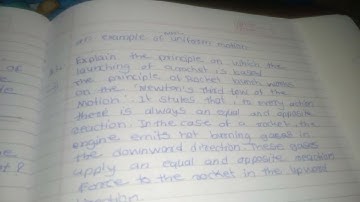 an example of uniform motion.
Explain the principle on which the
launching of a rocket is based
the principle of Rocket launch
on the 'Newton's third law of the
Motion'. It states that, to every action
there is always an equal and opposite
reaction. In the case of a rocket, the
engine emits hot burning gases in
the downward direction. These gases
apply an equal and opposite reaction
force to the rocket in the upward
direction.
of
le
ne
of ?